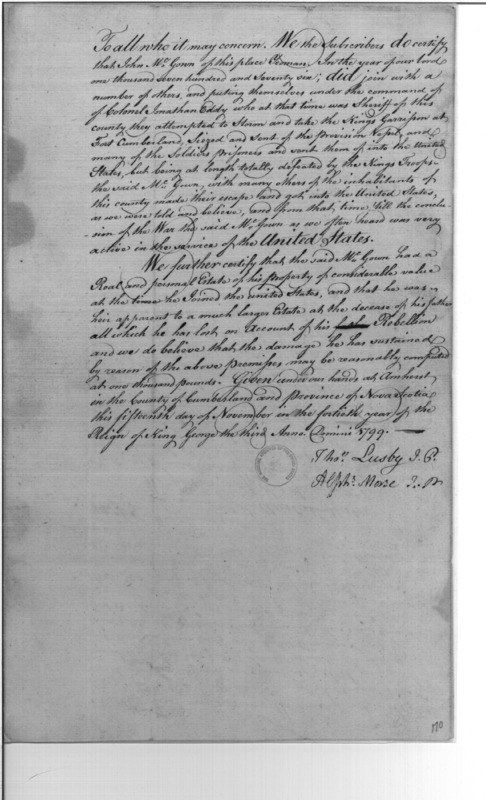 To all who it may concern. We the Subscribers do certify
that John Mc. Gown of this place Yeoman, In the year of our Lord
one thousand seven hundred and Seventy six; did join with a
number of others, and puting themselves under the command of
of Colonel Jonathan Eddy who at that time was Sheriff of this
county they attempted to Storm and take the Kings Garrison at
Fort Cumberland, Siezed and Sent of the provision Vessel, and
many of the Soldiers prisoners and sent them of into the United
States, but being at length totally defeated by the Kings Troops
the said Mc. Gown, with many others of the inhabitants of
this county made their escape and got into the United States,
as we were told and believe, and from that time till the conclu-
sion of the War the said Mc. Gown as we often heard was very
active in the service of the United States.
We further certify that the said Mc. Gown had a
Real and personal Estate of his property of considerable value
at the time he Joined the united States, and that he was
heir apparent to a much larger Estate at the decease of his father
all which he has lost on account of his Rebellion
and we do believe that the damage he has sustained
by reason of the above premises may be reasonably computed
at one thousand pounds. Given under our hands at Amherst
in the County of Cumberland and province of Nova Scotia
this fifteenth day of November in the fortieth year of the
Reign of King George the third Anno. Domini 1799.
Thos. Lusby J. P.
Alphs. Morse J. P.
170